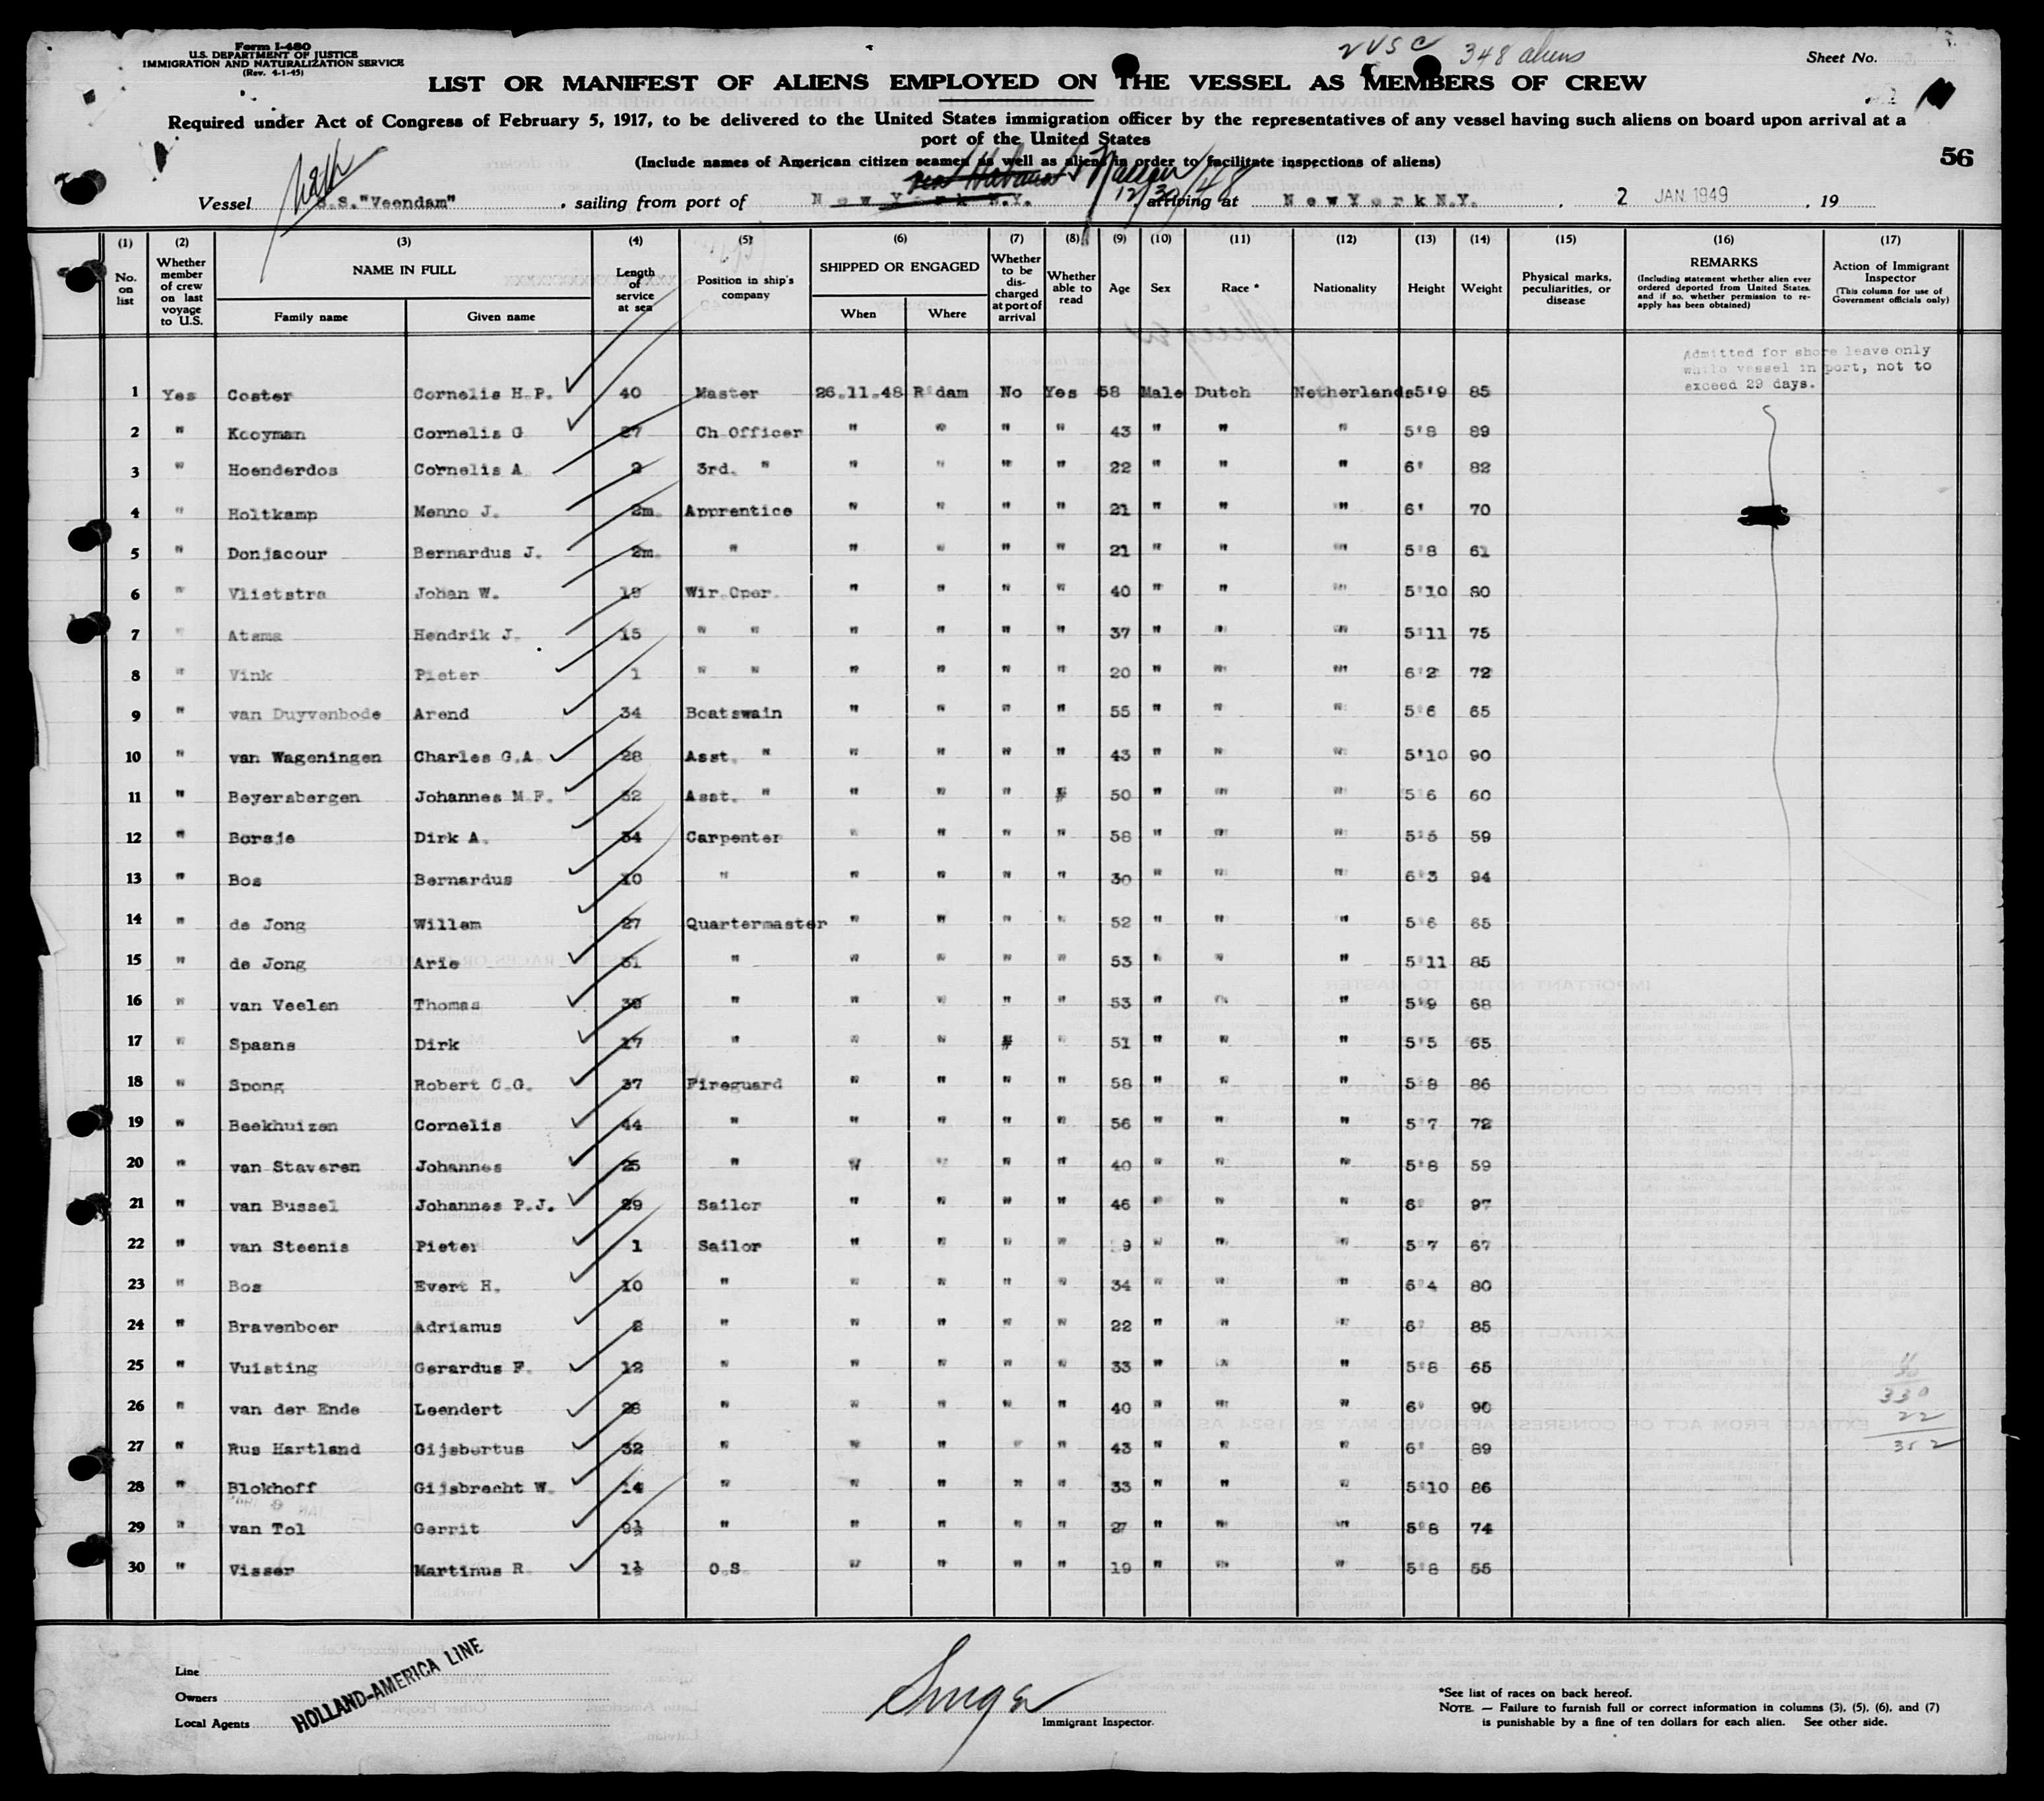 Form I-480
U.S. DEPARTMENT OF JUSTICE
IMMIGRATION AND NATURALIZATION SERVICE
(Rev. 4-1-45)
348 aliens
Sheet No.
LIST OR MANIFEST OF ALIENS EMPLOYED ON THE VESSEL AS MEMBERS OF CREW
Required under Act of Congress of February 5, 1917, to be delivered to the United States immigration officer by the representatives of any vessel having such aliens on board upon arrival at a
port of the United States
(Include names of American citizen seamen as well as aliens in order to facilitate inspections of aliens)
56
Vessel S.S."Veendam" , sailing from port of New York N.Y. Nassau 12/30/48 arriving at New York N.Y. , 2 JAN 1949 , 19
(1) (2) (3) (4) (5) (6) (7) (8) (9) (10) (11) (12) (13) (14) (15) (16) (17)
No. on list
Whether member of crew on last voyage to U.S.
NAME IN FULL
Family name Given name
Length of service at sea
Position in ship's company
SHIPPED OR ENGAGED
When Where
Whether to be discharged at port of arrival
Whether able to read
Age Sex Race * Nationality Height Weight
Physical marks, peculiarities, or disease
REMARKS
(Including statement whether alien ever ordered deported from United States, and if so, whether permission to reapply has been obtained)
Action of Immigrant Inspector
(This column for use of Government officials only)
Admitted for shore leave only
while vessel in port, not to
exceed 29 days.
1 Yes Coster Cornelis H.P. 40 Master 26.11.48 R'dam No Yes 58 Male Dutch Netherlands 5'9 85
2 " Kooyman Cornelis G 27 Ch.Officer " " " " 43 " " " 5'8 89
3 " Hoenderdos Cornelis A. 2 3rd. " " " " " 22 " " " 6' 82
4 " Holtkamp Menno J. 2m. Apprentice " " " " 21 " " " 6' 70
5 " Donjacour Bernardus J. 2m. " " " " " 21 " " " 5'8 61
6 " Vlietstra Johan W. 19 Wir.Oper. " " " " 40 " " " 5'10 80
7 " Atema Hendrik J. 15 " " " " " " 37 " " " 5'11 75
8 " Vink Pieter 1 " " " " " " 20 " " " 6'2 72
9 " van Duyvenbode Arend 34 Boatswain " " " " 55 " " " 5'6 65
10 " van Wageningen Charles G.A. 28 Asst. " " " " " 43 " " " 5'10 90
11 " Beyersbergen Johannes M.F. 32 Asst. " " " " " 50 " " " 5'6 60
12 " Borsje Dirk A. 34 Carpenter " " " " 58 " " " 5'5 59
13 " Bos Bernardus 10 " " " " " 30 " " " 6'3 94
14 " de Jong Willem 27 Quartermaster " " " " 52 " " " 5'6 65
15 " de Jong Arie 31 " " " " " 53 " " " 5'11 85
16 " van Veelen Thomas 39 " " " " " 53 " " " 5'9 68
17 " Spaans Dirk 17 " " " " " 51 " " " 5'5 65
18 " Spong Robert C.G. 37 Fireguard " " " " 58 " " " 5'8 86
19 " Beekhuizen Cornelis 44 " " " " " 56 " " " 5'7 72
20 " van Staveren Johannes 25 " " " " " 40 " " " 5'8 59
21 " van Bussel Johannes P.J. 29 Sailor " " " " 46 " " " 6' 97
22 " van Steenis Pieter 1 Sailor " " " " 9 " " " 5'7 67
23 " Bos Evert H. 10 " " " " " 34 " " " 6'4 80
24 " Bravenboer Adrianus 2 " " " " " 22 " " " 6' 85
25 " Vuisting Gerardus F. 12 " " " " " 33 " " " 5'8 65
26 " van der Ende Leendert 26 " " " " " 40 " " " 6' 90
27 " Rus Hartland Gijsbertus 32 " " " " " 43 " " " 6' 89
28 " Blokhoff Gijsbrecht W. 14 " " " " " 33 " " " 5'10 86
29 " van Tol Gerrit 9½ " " " " " 27 " " " 5'8 74
30 " Visser Martinus R. 1½ O.S. " " " " 19 " " " 5'8 55
330
22
352
Line
Owners
Local Agents
HOLLAND-AMERICA LINE
Immigrant Inspector.
*See list of races on back hereof.
NOTE. — Failure to furnish full or correct information in columns (3), (5), (6), and (7)
is punishable by a fine of ten dollars for each alien. See other side.